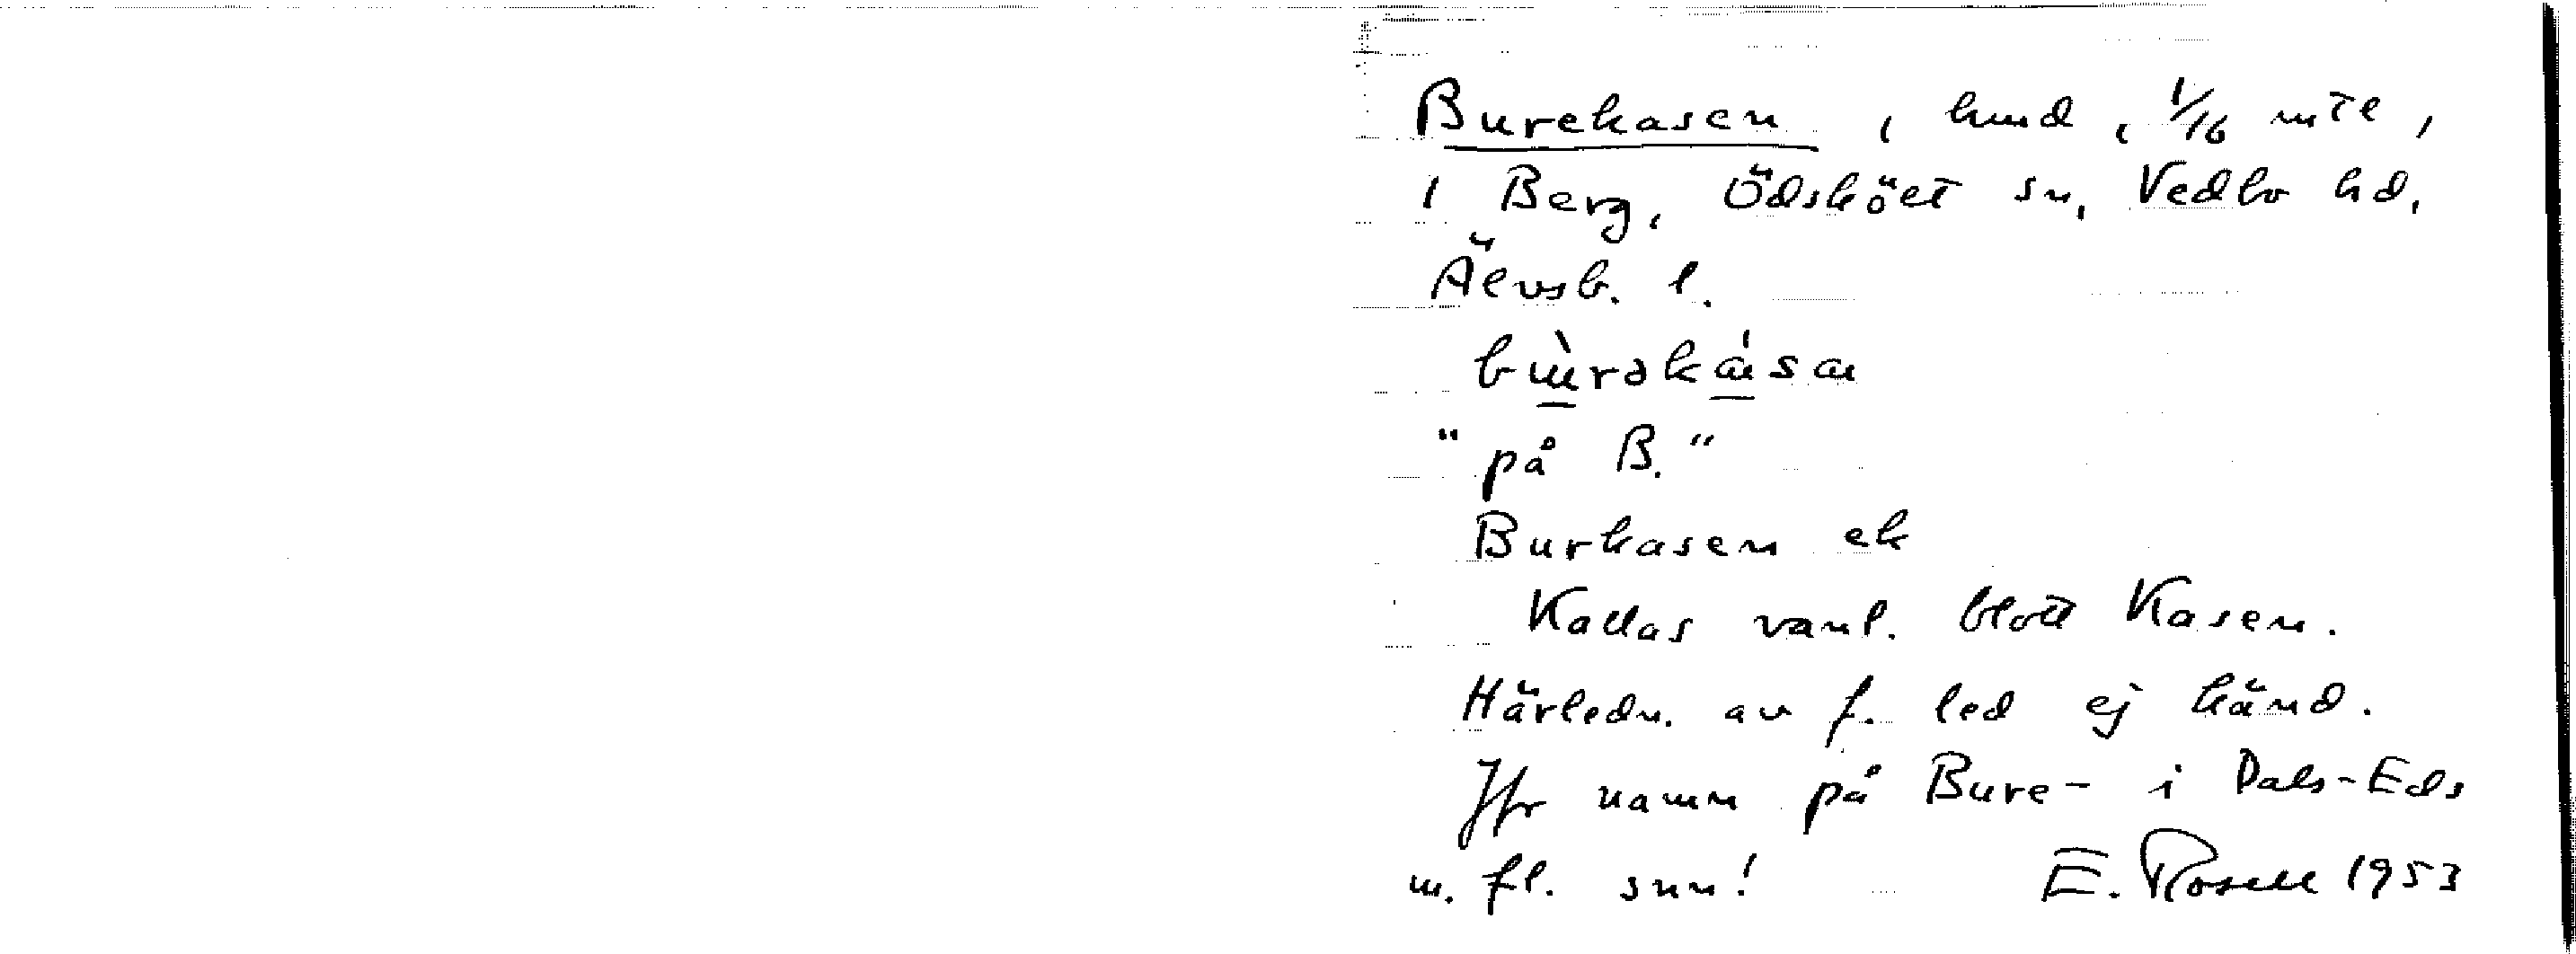 Burekasen, hmd, 1/16 mtl,
i Berg, Ödskölt sn, Vedbo hd,
Älvsb. l.
bùrəkása
"på B."
Burkasen ek
Kallas vanl. blott Kasen.
Härledn. av f. led ej känd.
Jfr namn på Bure- i Dals-Eds
m. fl. snn! E. Rosell 1953